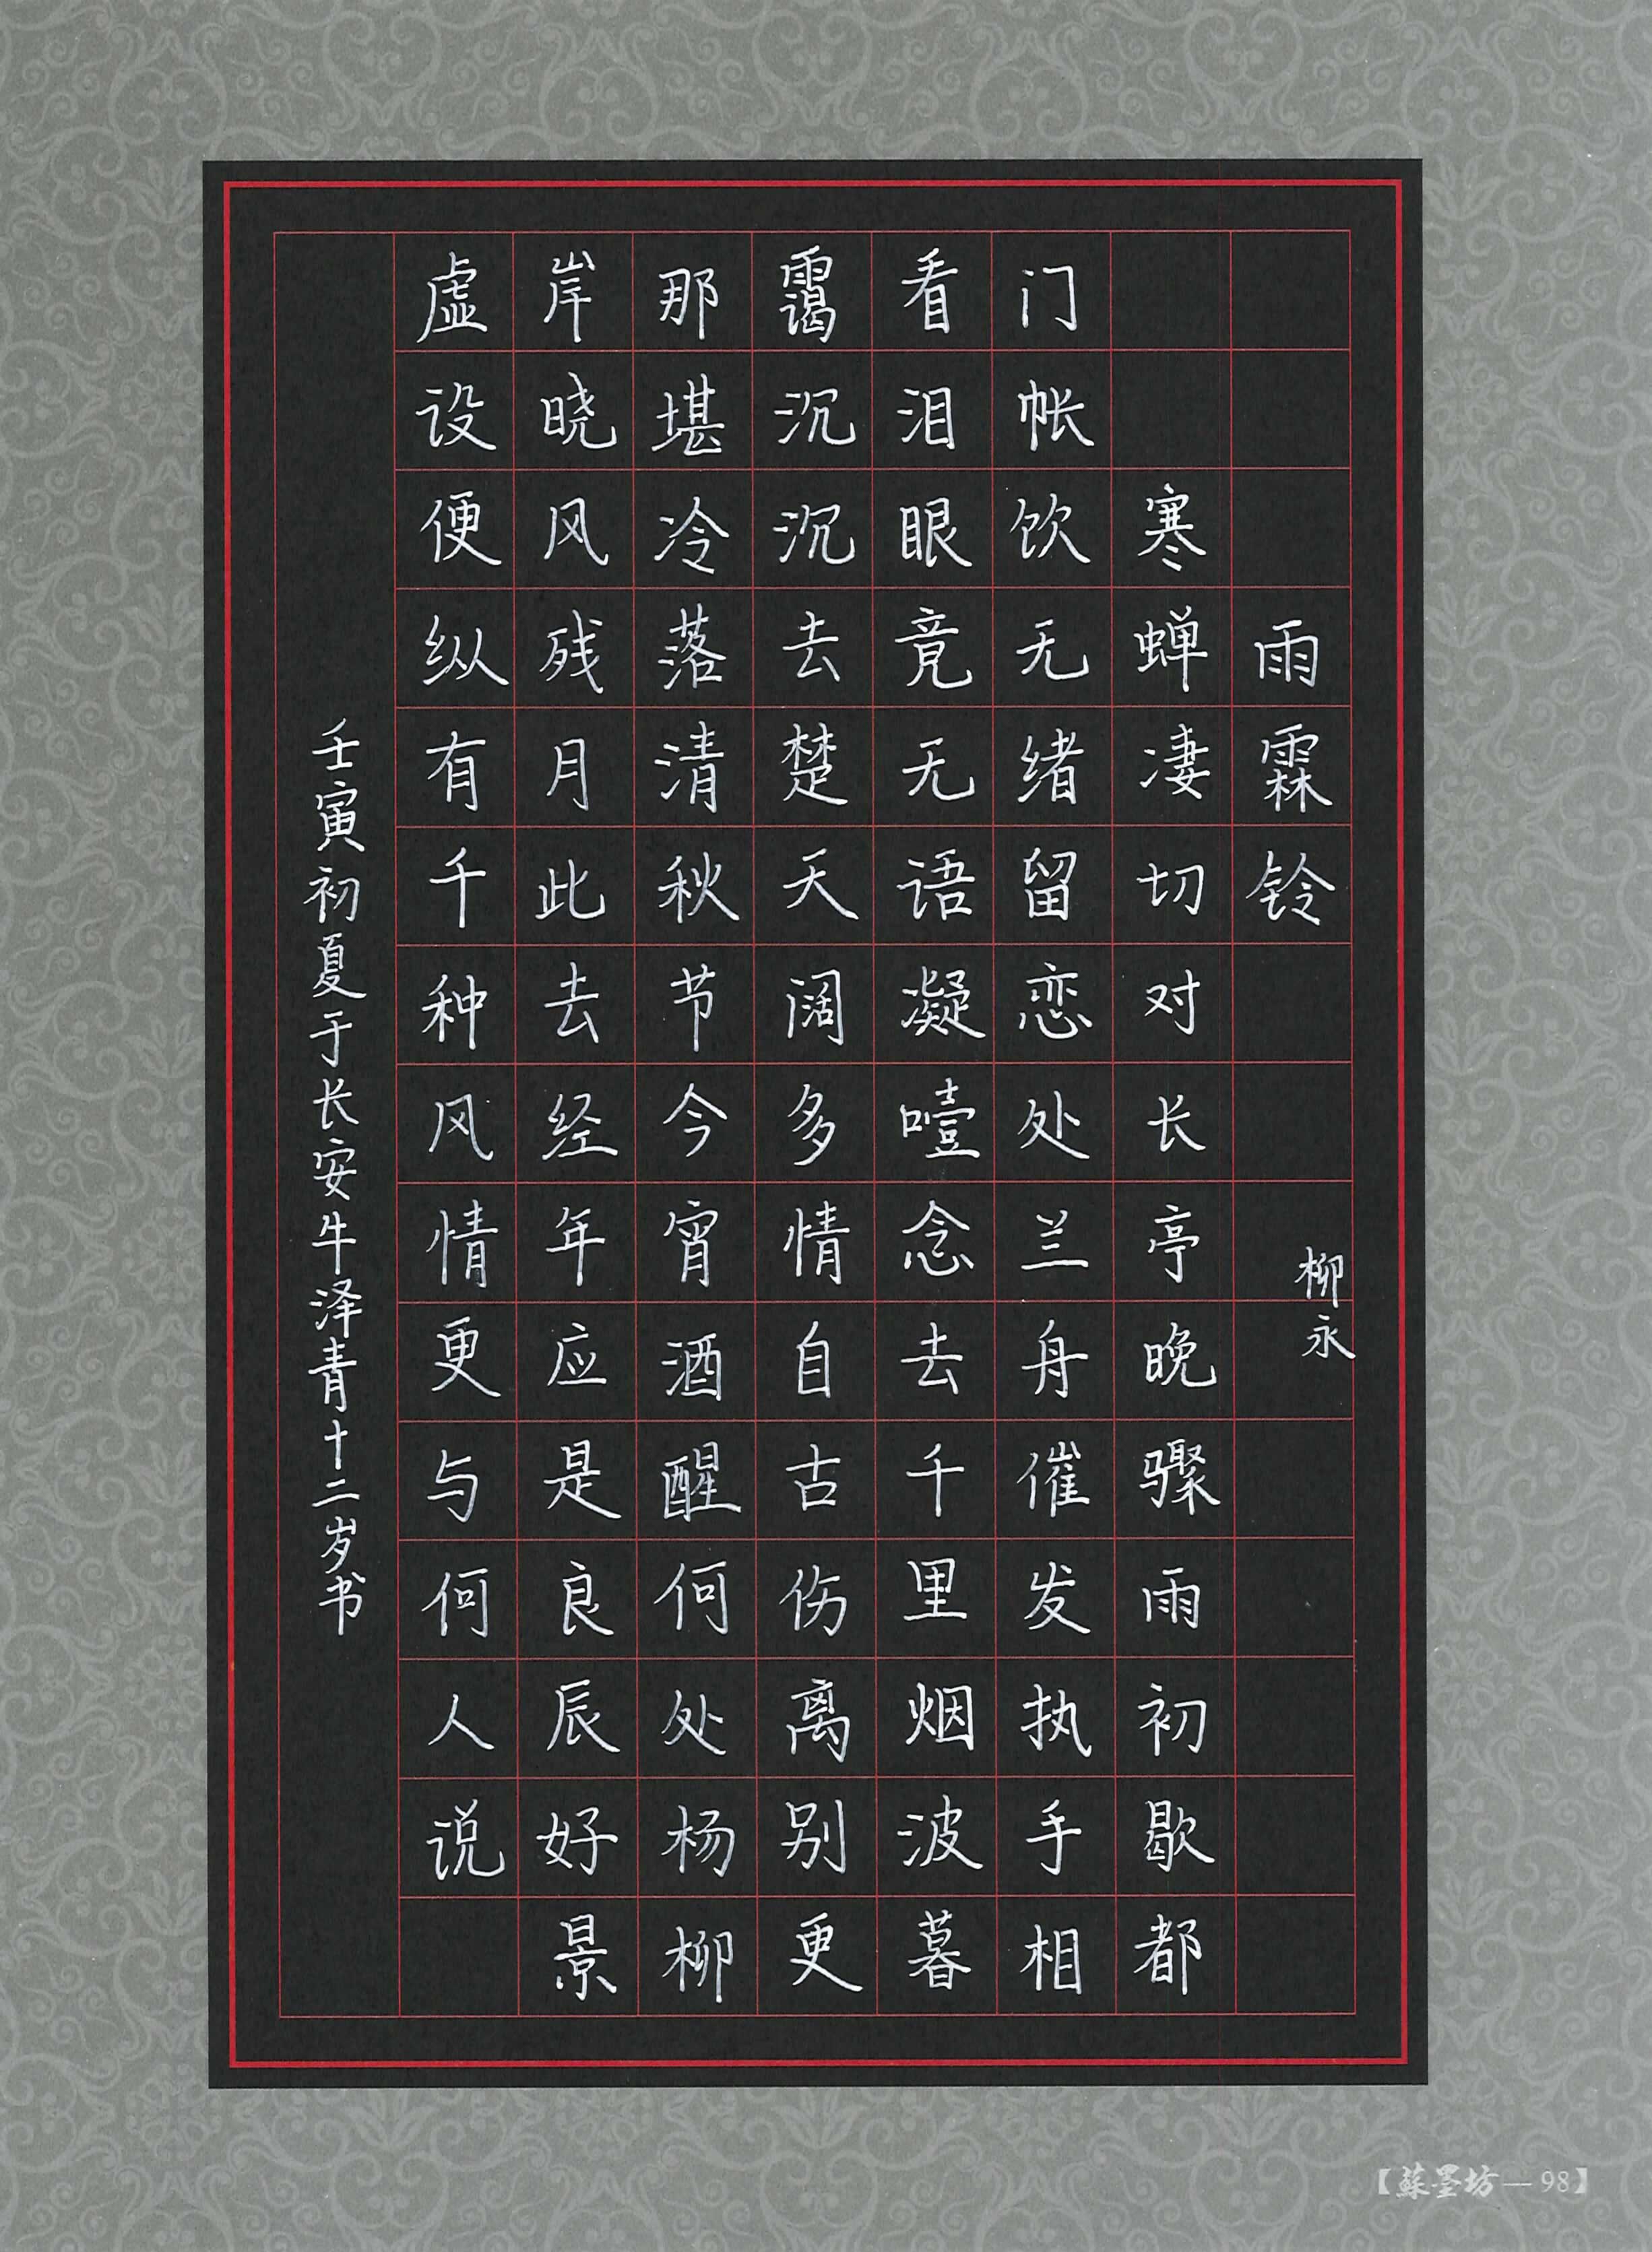 雨霖铃
柳永
寒蝉凄切对长亭晚骤雨初歇都
门帐饮无绪留恋处兰舟催发执手相
看泪眼竟无语凝噎念去千里烟波暮
霭沉沉去楚天阔多情自古伤离别更
那堪冷落清秋节今宵酒醒何处杨柳
岸晓风残月此去经年应是良辰好景
虚设便纵有千种风情更与何人说
壬寅初夏于长安牛泽青十二岁书
【蘇墨坊—98】